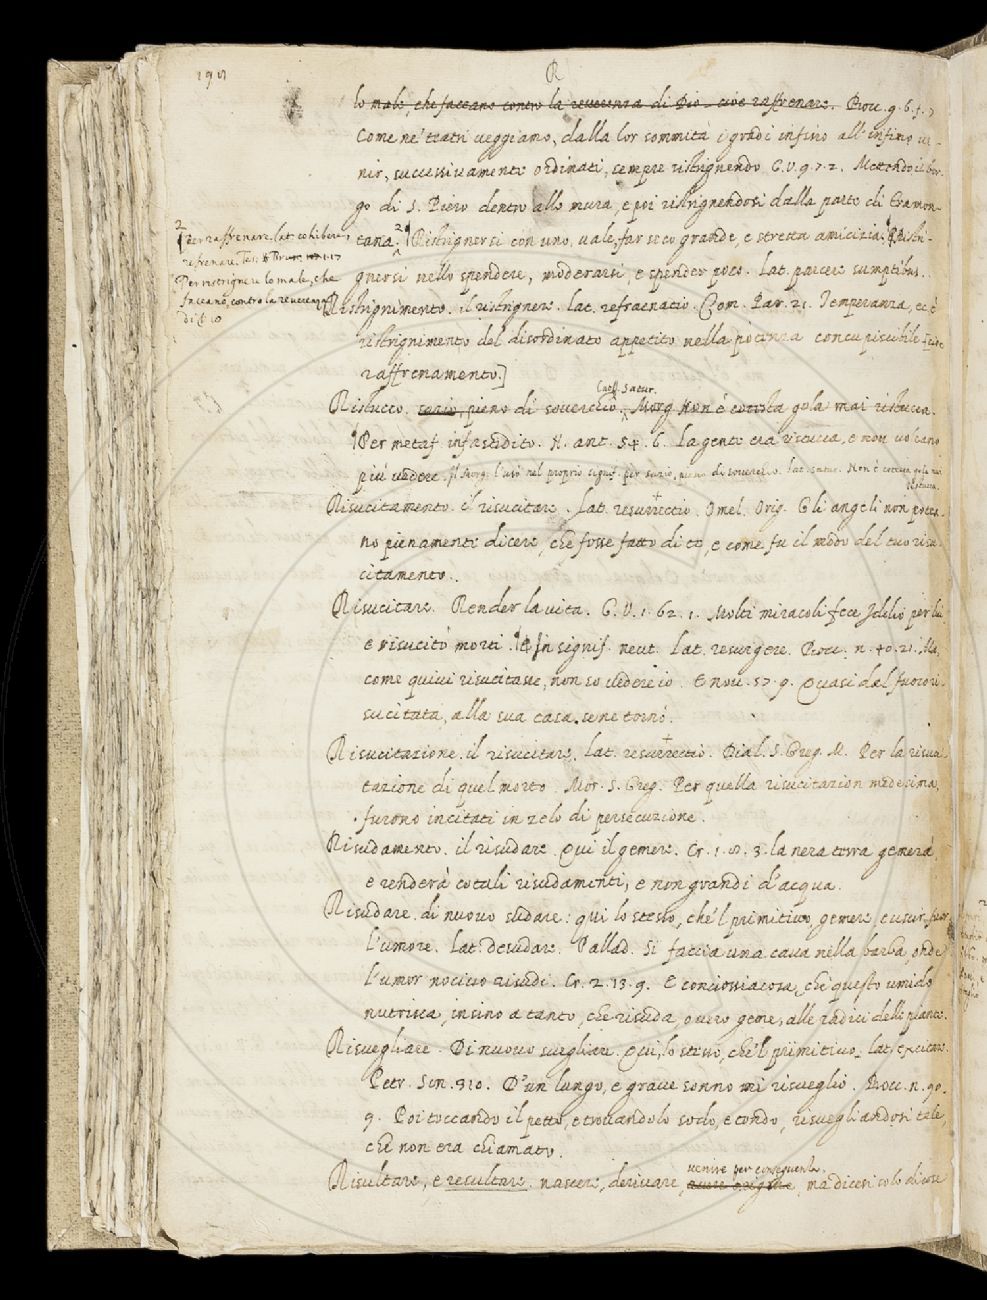 R
lo male, che faceano contro la reverenza di Dio. cioè raffrenare. Bocc. g. 6. f. 7
Come ne' teatri veggiamo, dalla lor sommità i gradi infino all'infimo ve-
nir, successivamente ordinati, sempre ristrignendo G.V. 9. 7. 2. Mettendo il bor-
go di S. Piero dentro alle mura, e poi ristrignendosi dalla parte di tramon-
2
Per raffrenare. lat. cohibere,
refrenare.
Per ristrignere lo male, che
faceano, contro la reverenza
di
tana. 2 Ristrignersi con uno, vale, far seco grande, e stretta amicizia. Ristri-
gnersi nello spendere, moderarsi, e spender poco. Lat. parcere sumptibus.
Ristrignimento. il ristrignere. lat. refraenatio. Com. Par. 21. Temperanza, cc. è
ristrignimento del disordinato appetito nella potenza concupiscibile [cioè
raffrenamento.]
Ristucco. sazio, pieno di soverchio. Lat. Satur. Morg. Non è cotesta gola mai ristucca.
Per metaf. infastidito. N. ant. 54. 6. La gente era ristucca, e non voleano
più vedere. Il Morg. l'usò nel proprio signif. per sazio, pieno di soverchio. lat. satur. Non è cotesta gola mai
ristucca.
Risucitamento. il risucitare. Lat. resurrectio. Omel. Orig. Gli angeli non potea-
no pienamente dicere, che fosse fatto di te, e come fu il modo del tuo risu-
citamento.
Risucitare. Render la vita. G.V. 1. 62. 1. Molti miracoli fece Iddio per lui
e risucitò morti. In signif. neut. Lat. resurgere. Bocc. n. 40. 21. Ma,
come quivi risucitasse, non so vedere io. E nov. 57. 9. Quasi dal fuoco ri-
sucitata, alla sua casa se ne tornò.
Risucitazione. il risucitare. Lat. resurrectio. Dial. S. Greg. M. Per la risuci-
tazione di quel morto. Mor. S. Greg. Per quella risucitazion medesima,
furono incitati in zelo di persecuzione.
Risudamento. il risudare. Qui il gemere. Cr. 1. 8. 3. la nera terra gemerà,
e renderà cotali risudamenti, e non grandi d'acqua.
Risudare. di nuovo sudare: qui lo stesso, che 'l primitivo, gemere, e uscir fuor
l'umore. Lat. desudare. Pallad. Si faccia una cava nella barba, onde
l'umor nocivo risudi. Cr. 2. 13. 9. E conciossiacosa, che questo umido
nutrisca, insino a tanto, che risuda, ovvero geme, alle radici delle piante.
Risvegliare. Di nuovo svegliare. Qui, lo stesso, che 'l primitivo. lat. excitare.
Petr. Son. 310. D'un lungo, e grave sonno mi risveglio. Bocc. n. 90.
9. Poi toccando il petto, e trovandolo sodo, e tondo, risvegliandosi tale,
che non era chiamato.
venire per conseguente,
Risultare, e resultare. nascere, derivare, avere origine, ma dicesi solo di cose